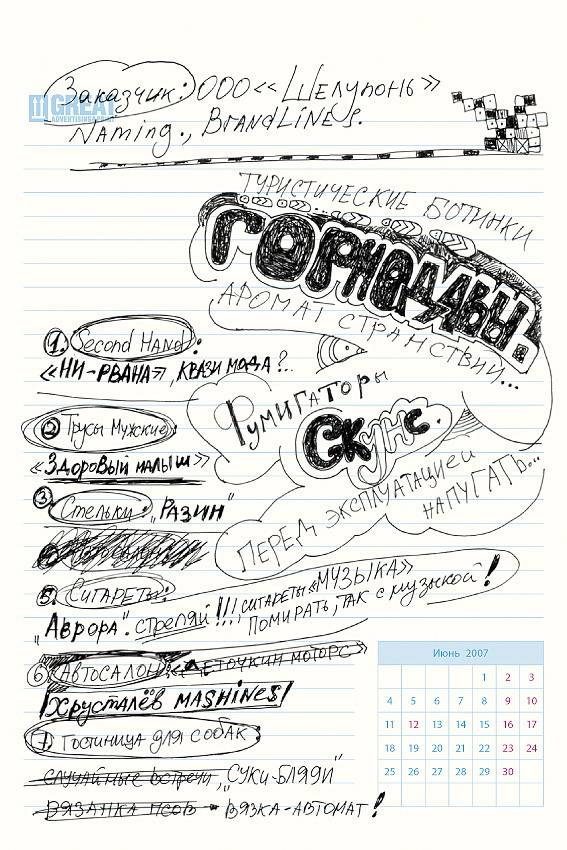 Заказчик: ООО «Шелупонь»
GREAT
NAMING., BRANDLINES.
ТУРИСТИЧЕСКИЕ БОТИНКИ
АРОМАТ СТРАНСТВИЙ...
1. Second Hand:
«НИ-РВАНА», КВАЗИ МОДА?..
Фумигаторы
Скунс.
ПЕРЕД ЭКСПЛУАТАЦИЕЙ
НАПУГАТЬ...
2 Трусы Мужские:
«ЗДОРОВЫЙ МАЛЫШ»
3 Стельки: „РАЗИН“
5. Сигареты:
„АВРОРА“. стреляй!!!
СИГАРЕТЫ «МУЗЫКА»
ПОМИРАТЬ, ТАК с музыкой!
6 АВТОСАЛОН: «ЛЕТОЧКИН МОТОРС»
ХРУСТАЛЁВ MASHINES
7 Гостиница для собак
СЛУЧАЙНЫЕ ВСТРЕЧИ, „СУКИ-БЛЯДИ“
ВЯЗАНКА ПСОВ - ВЯЗКА-АВТОМАТ!
Июнь 2007
1 2 3
4 5 6 7 8 9 10
11 12 13 14 15 16 17
18 19 20 21 22 23 24
25 26 27 28 29 30